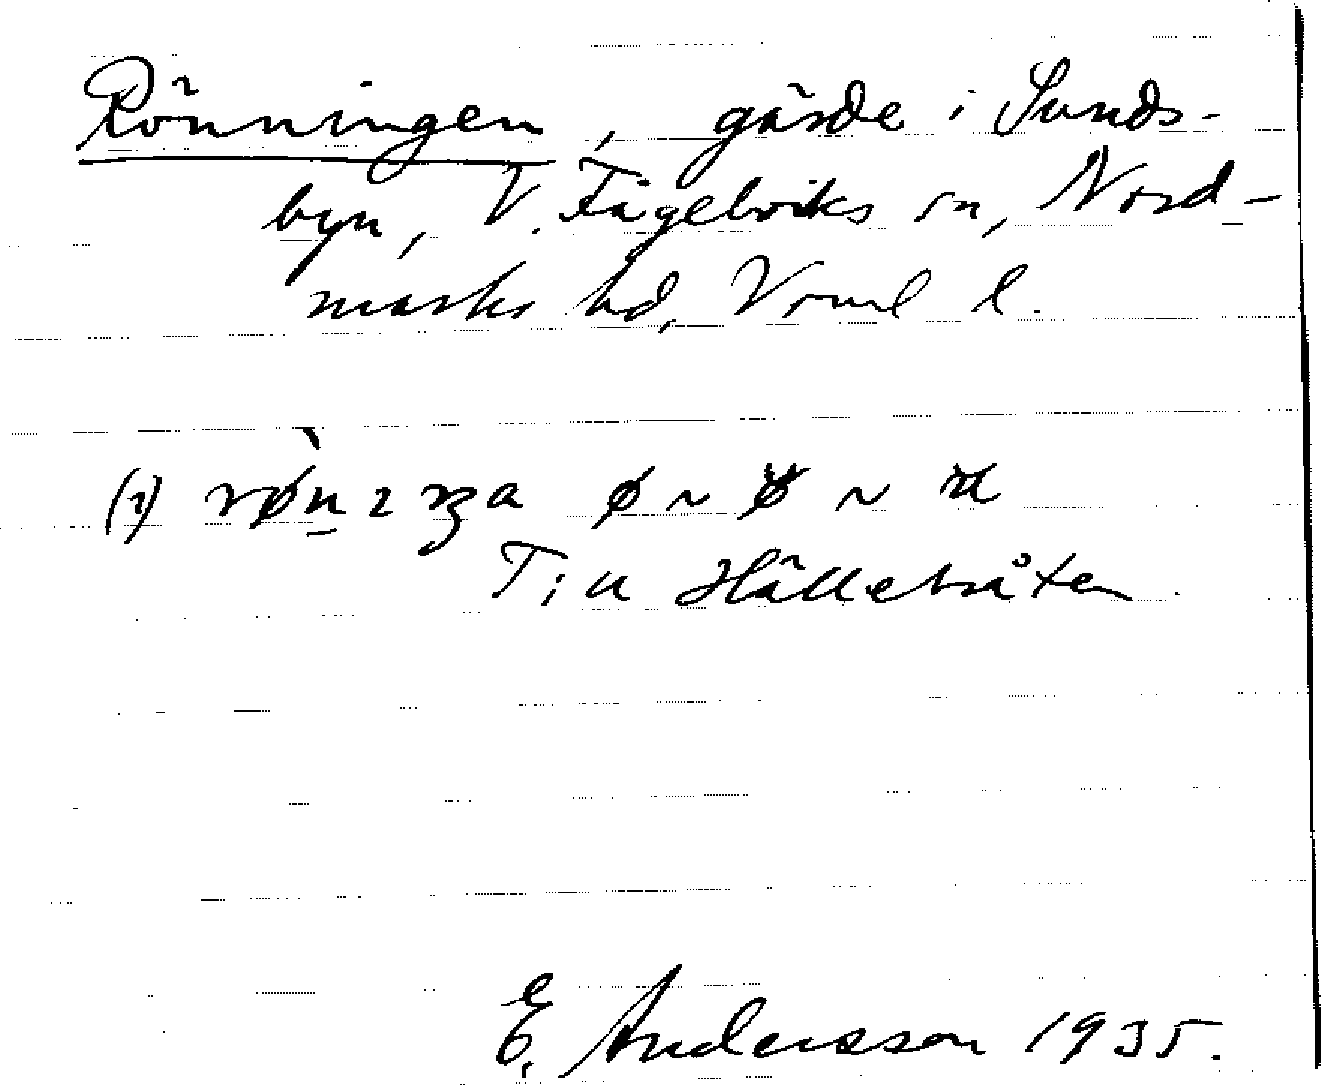 Rönningen, gärde i Sunds-
byn, V. Fågelviks sn, Nord-
marks hd, Vrml l.
(i) røn ɩ ŋa ø ~ ~
Till Hälletråten
E. Andersson 1935.